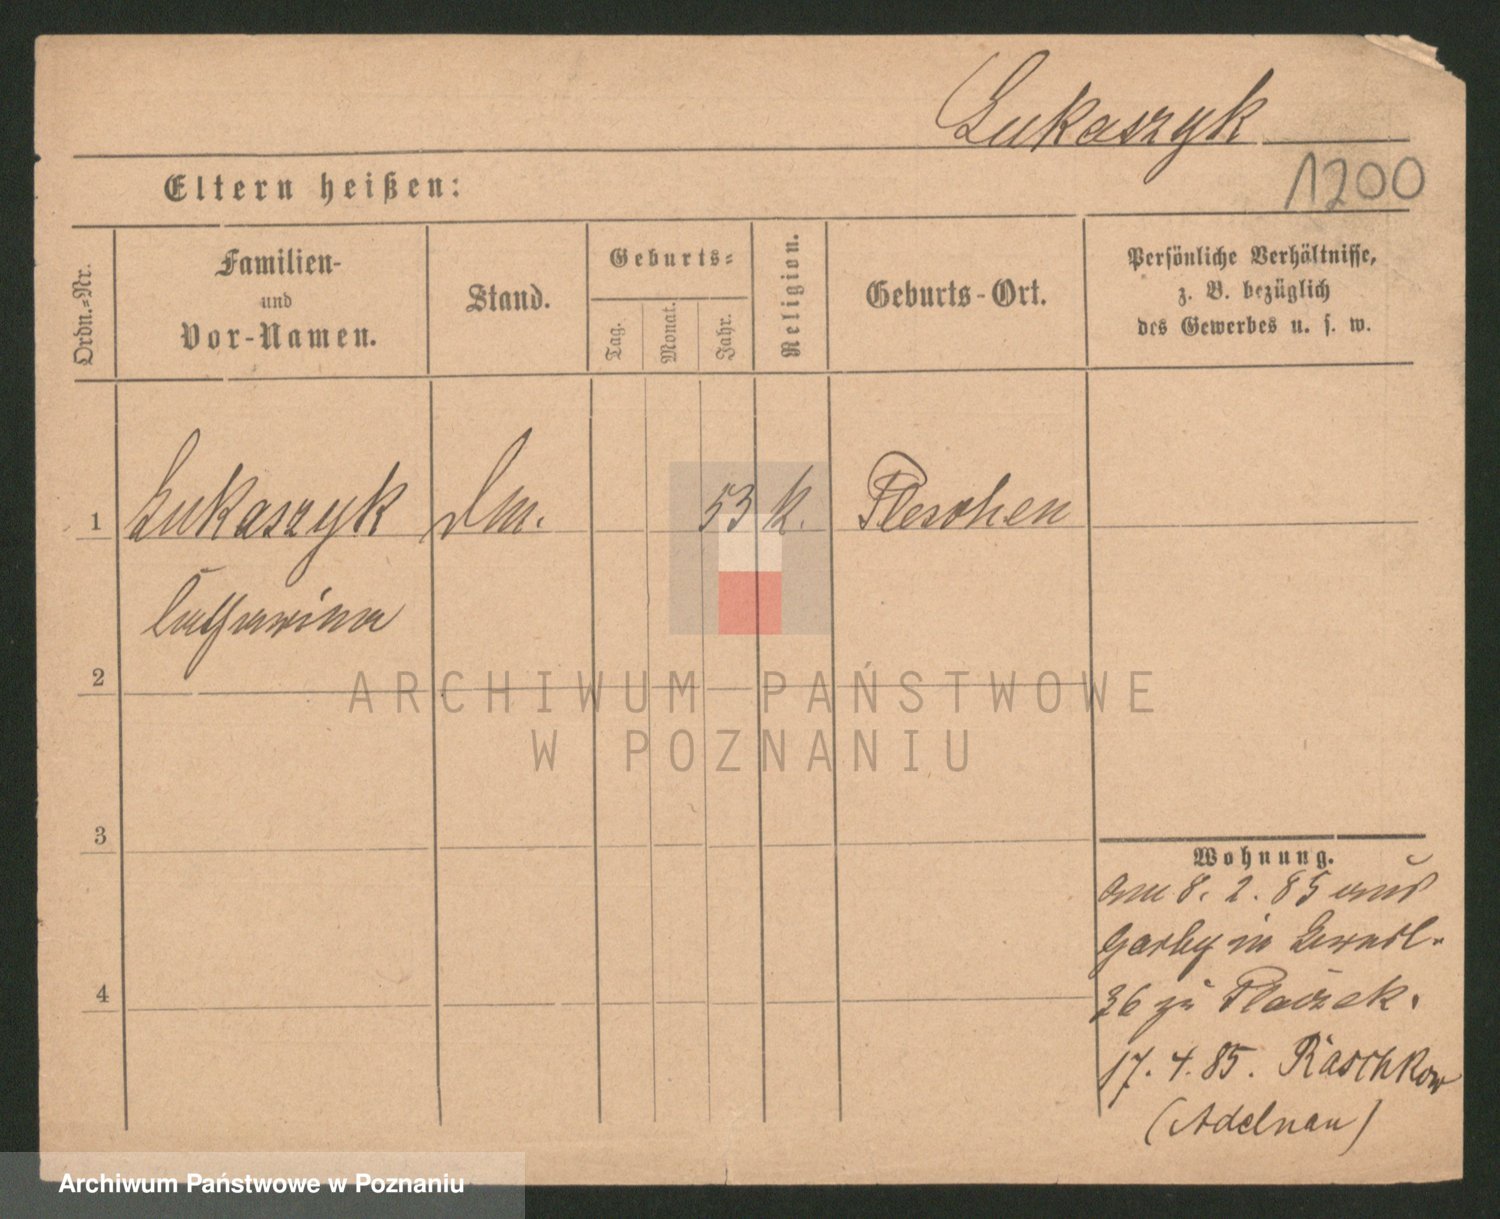 Lukaszyk
1200
Eltern heißen:
Ordn.-Nr.
Familien-
und
Vor-Namen.
Stand.
Geburts-
Tag.
Monat.
Jahr.
Religion.
Geburts-Ort.
Persönliche Verhältnisse,
z. B. bezüglich
des Gewerbes u. s. w.
1 Lukaszyk Dm. 53 k. Pleschen
Catharina
2
3
4
Wohnung.
am 8. 2. 85 aus
in
36 zu
17. 4. 85. Raschkow
(Adelnau)
ARCHIWUM PAŃSTWOWE
W POZNANIU
Archiwum Państwowe w Poznaniu